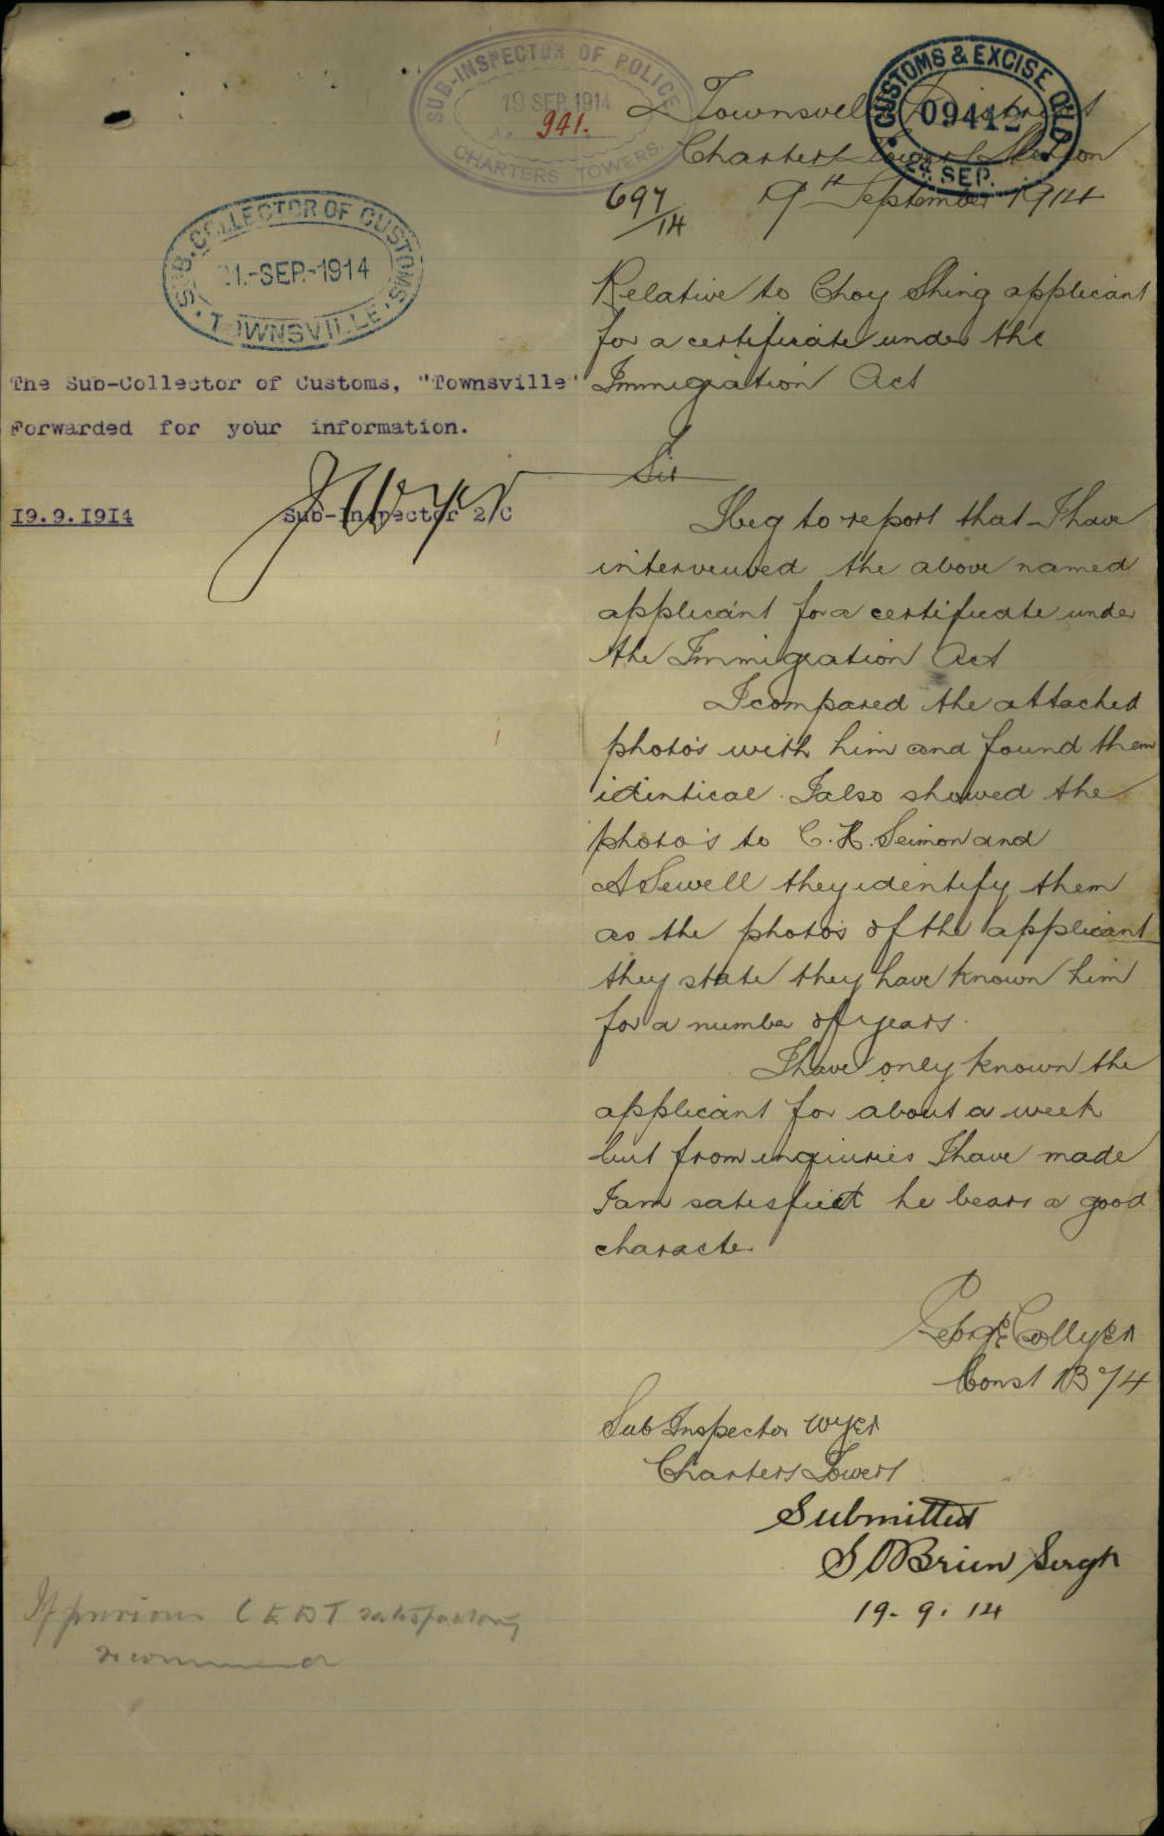 SUB-INSPECTOR OF POLICE
19 SEP. 1914
941.
CHARTERS TOWERS.
CUSTOMS & EXCISE Q'LD
09412
24. SEP.
Townsville District
Charters Towers Station
697/14
19th September 1914
SUB. COLLECTOR OF CUSTOMS
21.-SEP.-1914
TOWNSVILLE
The Sub-Collector of Customs, "Townsville"
Forwarded for your information.
19.9.1914 Sub-Inspector 2/C
Relative to Choy Shing applicant
for a certificate under the
Immigration Act
Sir
I beg to report that I have
interveiwed the above named
applicant for a certificate under
the Immigration Act
I compared the attached
photo's with him and found them
identical. I also showed the
photo's to C. H. Seimon and
A Sewell they identify them
as the photo's of the applicant
they state they have known him
for a number of years.
I have only known the
applicant for about a week
but from inqiuries I have made
I am satisfied he bears a good
character
George Collyer
Const 1374
Sub Inspector Wyer
Charters Towers
Submitted
S O'Brien Sergt
19-9.14
If previous CEDT satisfactory
recommend